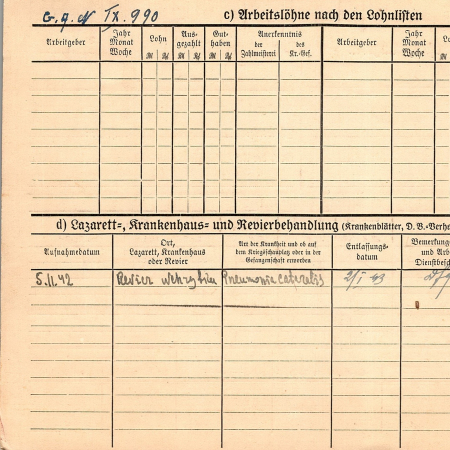 IX. 990 c) Arbeitslöhne nach den Lohnlisten
Arbeitgeber Jahr Monat Woche Lohn Aus- gezahlt Gut- haben Anerkenntnis der Zahlmeisterei des Kr.-Gef. Arbeitgeber Jahr Monat Woche
d) Lazarett-, Krankenhaus- und Revierbehandlung (Krankenblätter, D. B.-Verhe
Aufnahmedatum Ort, Lazarett, Krankenhaus oder Revier Art der Krankheit und ob auf dem Kriegsschauplatz oder in der Gefangenschaft erworben Entlassungs- datum Bemerkung und Arb Dienstbesch
5.11.42 Revier Pneumonia